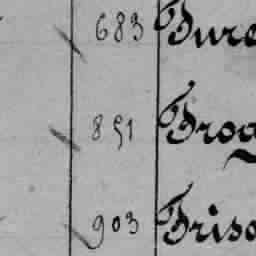 683 Fure
851 Frog
903 Friso